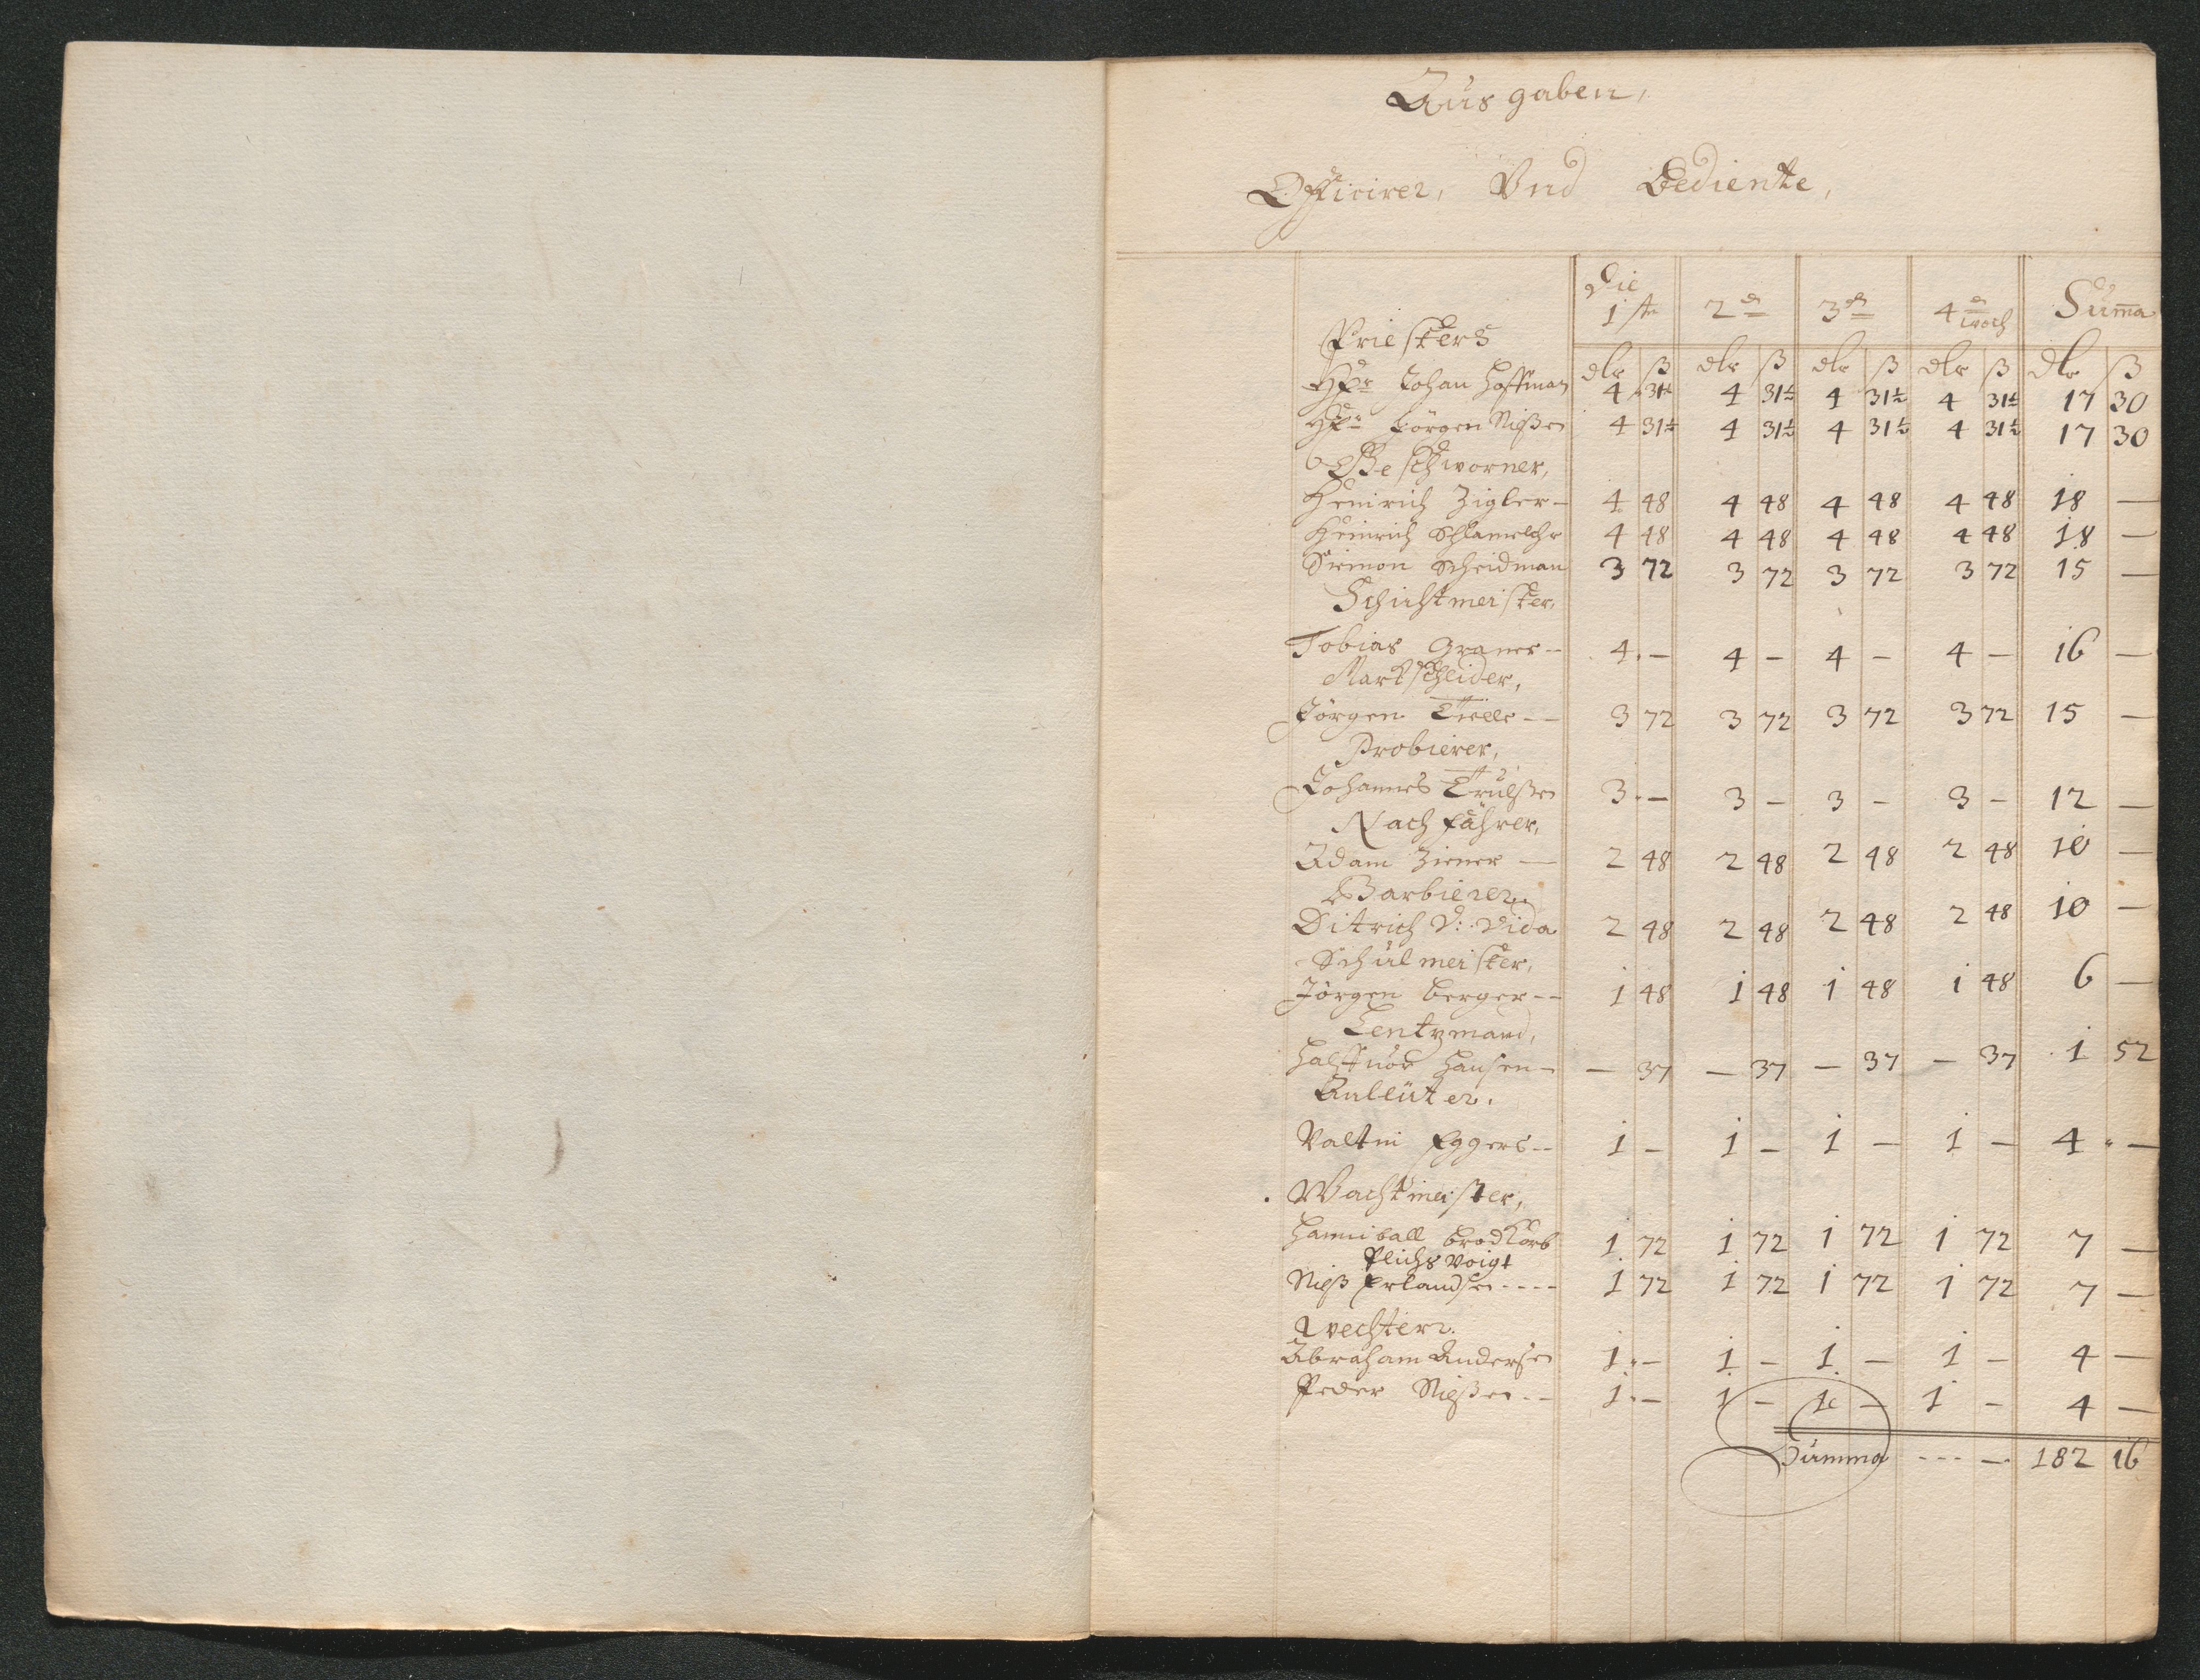 Ausgaben,
Officirer, Vnd Bediente,
Die
1ste 2te 3te 4te woch Summa
Priesters dlr ß dlr ß dlr ß dlr ß dlr ß
Hr: Johan Hoffman 4 31½ 4 31½ 4 31½ 4 31½ 17 30
Hr: Jörgen Nießen 4 31½ 4 31½ 4 31½ 4 31½ 17 30
Geschworner,
Heinrich Zigler – 4 48 4 48 4 48 4 48 18 —
Heinrich Schlanelchr 4 48 4 48 4 48 4 48 18 —
Siemon Scheidman 3 72 3 72 3 72 3 72 15 —
Schichtmeister,
Tobias Graner – 4 – 4 – 4 – 4 – 16 —
Markscheider,
Jörgen Tielle – – 3 72 3 72 3 72 3 72 15 —
Probierer,
Johannes Trulßen 3 – 3 – 3 – 3 – 12 —
Nachfahrer,
Adam Ziener — 2 48 2 48 2 48 2 48 10 —
Barbierer.
Ditrich V: Vida 2 48 2 48 2 48 2 48 10 —
Schulmeister,
Jörgen Berger – – 1 48 1 48 1 48 1 48 6 —
Lentzmand,
Halffuor Hansen – — 37 — 37 — 37 — 37 1 52
Anleüter.
Valtin Eggers – – 1 – 1 – 1 – 1 – 4 —
Wachtmeister,
Hanniball Brodkorb 1 72 1 72 1 72 1 72 7 —
Plichs Voigt
Nielß Erlandsen - - - - 1 72 1 72 1 72 1 72 7 —
Wechter.
Abraham Andersen 1 – 1 – 1 – 1 – 4 —
Peder Nielßen – – 1 – 1 – 1 – 1 – 4 —
Summa - - - — 182 16